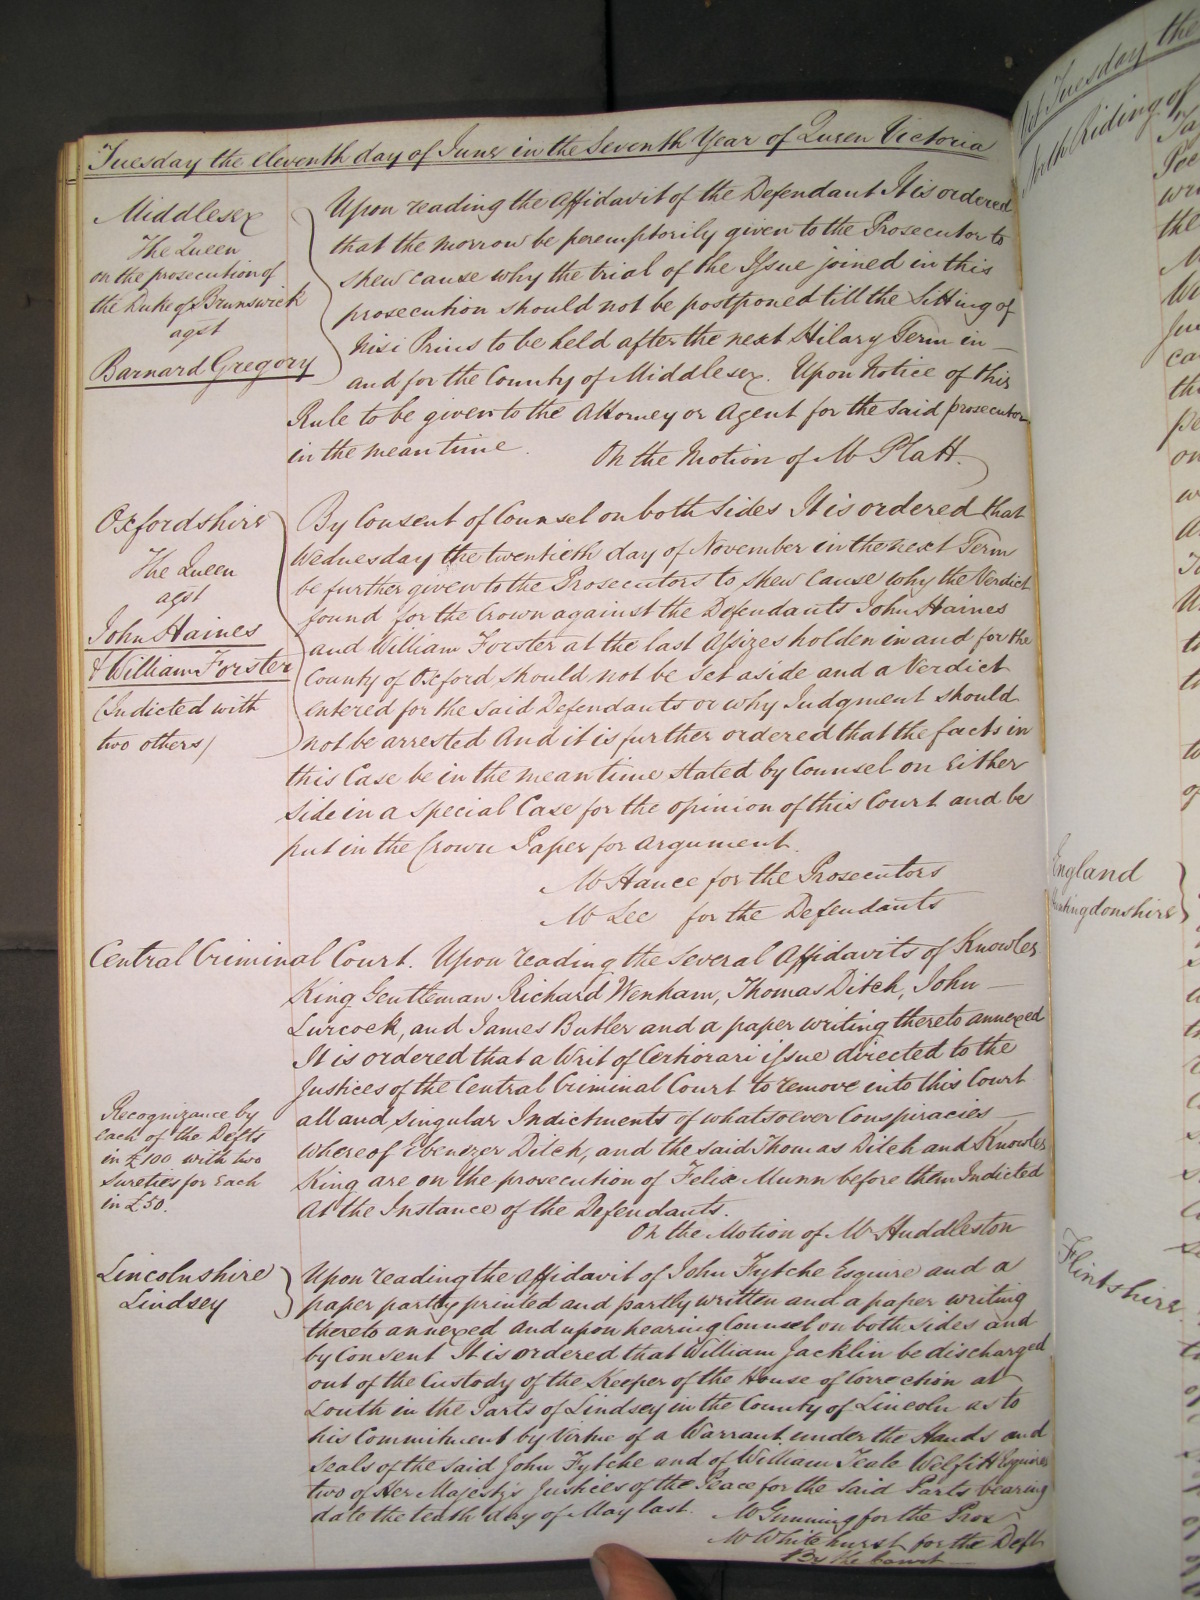 Tuesday the eleventh day of June in the Seventh Year of Queen Victoria
Middlesex
The Queen
on the prosecution of
the Duke of Brunswick
agst
Barnard Gregory
Upon reading the Affidavit of the Defendant It is ordered
that the morrow be peremptorily given to the Prosecutor to
shew cause why the trial of the Issue joined in this
prosecution should not be postponed till the Sitting of
Nisi Prius to be held after the next Hilary Term in
and for the County of Middlesex. Upon Notice of this
Rule to be given to the Attorney or Agent for the said prosecutor
in the mean time.
On the Motion of Mr Platt.
Oxfordshire
The Queen
agst
John Haines
& William Forster
(Indicted with
two others)
By Consent of Counsel on both sides It is ordered that
Wednesday the twentieth day of November in the next Term
be further given to the Prosecutors to shew cause why the Verdict
found for the Crown against the Defendants John Haines
and William Forster at the last Assizes holden in and for the
County of Oxford should not be set aside and a Verdict
entered for the said Defendants or why Judgment should
not be arrested And it is further ordered that the facts in
this Case be in the mean time stated by Counsel on either
side in a special Case for the opinion of this Court and be
put in the Crown Paper for argument.
Mr Hance for the Prosecutors
Mr Lee for the Defendants
Central Criminal Court. Upon reading the several Affidavits of Knowles
King Gentleman Richard Wenham, Thomas Ditch, John
Lurcock, and James Butler and a paper writing thereto annexed
It is ordered that a Writ of Certiorari issue directed to the
Justices of the Central Criminal Court to remove into this Court
all and singular Indictments of whatsoever Conspiracies
whereof Ebenezer Ditch, and the said Thomas Ditch and Knowles
King are on the prosecution of Felix Munn before them Indicted
At the Instance of the Defendants.
On the Motion of Mr Huddleston
Recognizance by
each of the Defts
in £100 with two
sureties for each
in £50.
Lincolnshire
Lindsey
Upon reading the affidavit of John Fytche Esquire and a
paper partly printed and partly written and a paper writing
thereto annexed And upon hearing Counsel on both sides and
by Consent It is ordered that William Jacklin be discharged
out of the Custody of the Keeper of the House of Correction at
Louth in the Parts of Lindsey in the County of Lincoln as to
his Commitment by Virtue of a Warrant under the Hands and
Seals of the said John Fytche and of William Teale Welfitt Esquires
two of Her Majesty's Justices of the Peace for the said Parts bearing
date the tenth day of May last.
Mr Gunning for the Pros
Mr Whitehurst for the Deft
By the Court
Tuesday the
North Riding of
England
Huntingdonshire
Flintshire